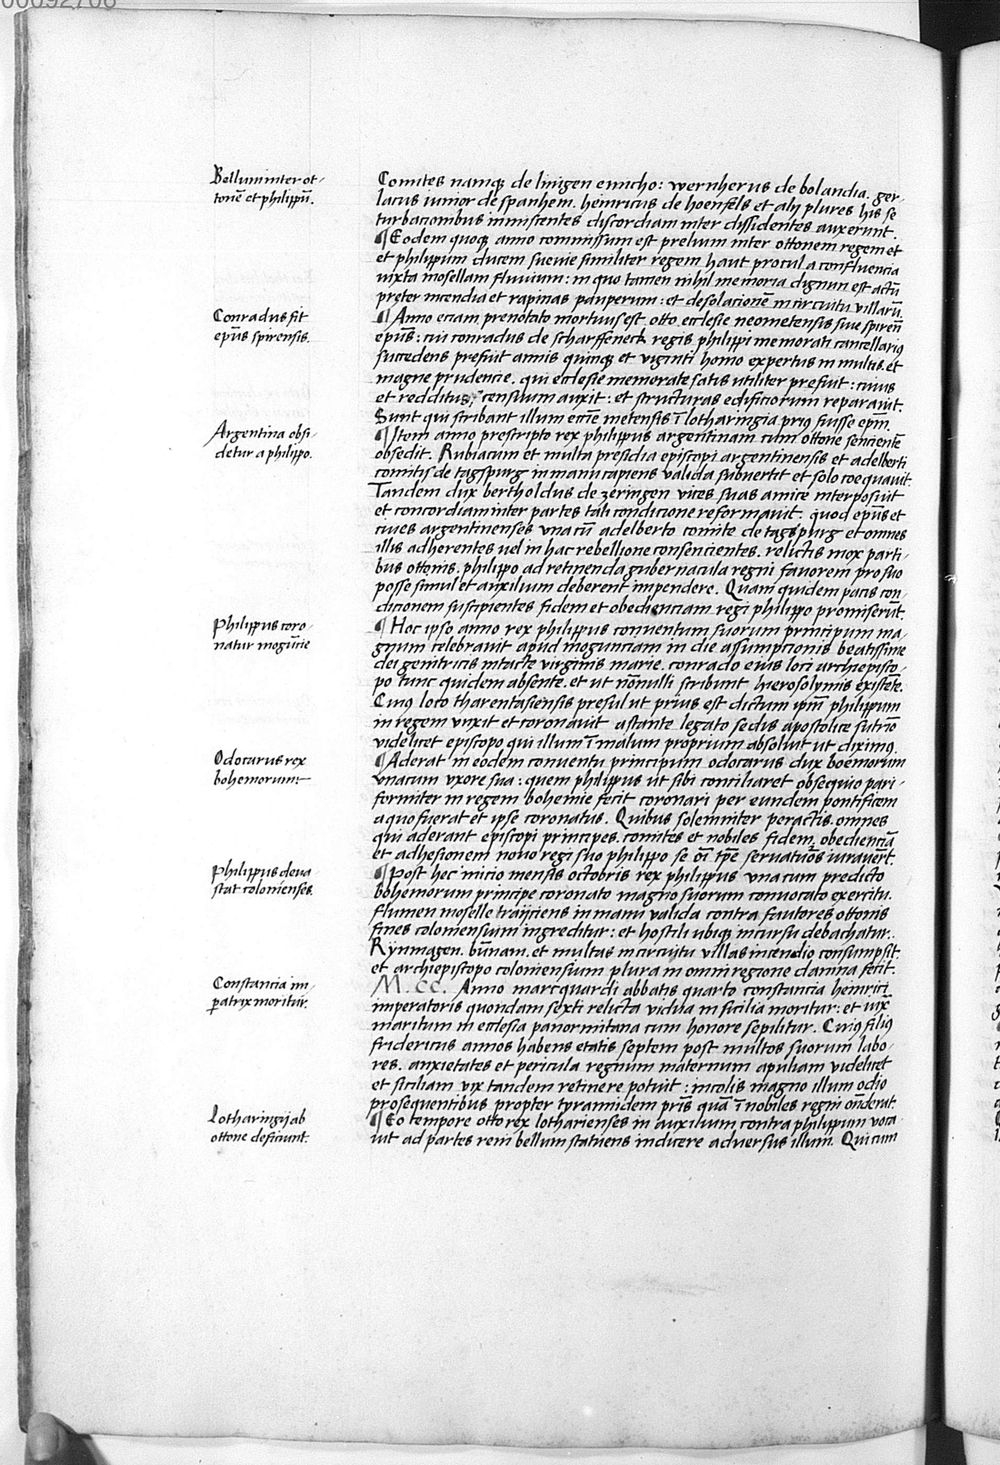 Bellum inter ot-
tonē et philippū.
Comites namq; de linigen emicho: wernherus de bolandia. ger-
lacus iunior de spanhem. heinricus de hoenfels et alij plures his se
turbacionibus inmiscentes discordiam inter dissidentes auxerunt.
¶ Eodem quoq; anno commissum est prelium inter ottonem regem et
et philippum ducem sueuie similiter regem haut procul a confluencia
iuxta mosellam fluuium: in quo tamen nihil memoria dignum est actū
preter incendia et rapinas pauperum: et desolacionē in circuitu villarū.
Conradus fit
ep̄us spirensis.
¶ Anno eciam prenotato mortuus est otto ecclesie neometensis siue spireñ
ep̄us: cui conradus de scharffeneck regis philippi memorati cancellarius
succedens prefuit annis quinque et viginti homo expertus in multis et
magne prudencie. qui ecclesie memorate satis utiliter prefuit: cuius
et redditus, censuum auxit: et structuras edificiorum reparauit.
Sunt qui scribant illum eciā metensis ī lotharingia prius fuisse ep̄m.
Argentina obsi-
detur a philippo.
¶ Item anno prescripto rex philippus argentinam cum ottone sencientē
obsedit. Rubiacum et multa presidia episcopi argentinensis et adelberti
comitis de tagspurg in manu capiens valida subuertit et solo coequauit
Tandem dux bertholdus de zeringen vices suas amice interposuit
et concordiam inter partes tali condicione reformauit. quod ep̄us et
ciues argentinenses una cū adelberto comite de tagspurg et omnes
illis adherentes uel in hac rebellione consencientes. relictis mox parti-
bus ottonis. philippo ad retinenda gubernacula regni fauorem pro suo
posse simul et auxilium deberent impendere. Quam quidem pacis con-
dicionem suscipientes fidem et obedienciam regi philippo promiserūt.
Philippus coro-
natur moguncie
¶ Hoc ipso anno rex philippus conuentum suorum principum ma-
gnum celebrauit apud mogunciam in die assumpcionis beatissime
dei genitricis intacte virginis marie. conrado eius loci archiepisco-
po tunc quidem absente. et ut nōnulli scribunt hierosolymis existēte.
Cuius loco tharentasiensis presul ut prius est dictum ip̄m philippum
in regem vnxit et coronauit astante legato sedis apostolice sutrio
videlicet episcopo qui illum ī malum proprium absoluit ut diximus.
Odocarus rex
bohemorum:-
¶ Aderat in eodem conuentu principum odocarus dux boemorum
vnacum vxore sua: quem philippus ut sibi conciliaret obsequio pari-
formiter in regem bohemie fecit coronari per eundem pontificem
a quo fuerat et ipse coronatus. Quibus solemniter peractis. omnes
qui aderant episcopi principes. comites et nobiles fidem, obedienciā
et adhesionem nouo regi suo philippo se oī tp̄e seruatuōs iurauerūt.
Philippus deua
stat colonienses.
¶ Post hec inicio mensis octobris rex philippus vna cum predicto
bohemorum principe coronato magno suorum conuocato exercitu.
flumen moselle traijciens in manu valida contra fautores ottonis
fines coloniensium ingreditur: et hostili ubiq; incursu debachatur.
Rynmagen. bunnam. et multas in circuitu villas incendio consumpsit.
et archiepiscopo coloniensium plura in omni regione damna fecit.
Constancia im-
patrix moritur.
M.CC. Anno marcquardi abbatis quarto constancia heinrici
imperatoris quondam sexti relicta vidua in sicilia moritur: et iux̄
maritum in ecclesia panormitana cum honore sepilitur. Cuius filius
fridericus annos habens etatis septem post multos suorum labo-
res. anxietates et pericula regnum maternum apuliam videlicet
et siciliam vix tandem retinere potuit: incolis magno illum odio
prosequentibus propter tyrannidem pr̄is quā ī nobiles regni on̄derat.
Lotharingij ab
ottone deficiunt.
¶ Eo tempore otto rex lotharienses in auxilium contra philippum voca
uit ad partes reni bellum statuens indicere aduersus illum. Qui cum